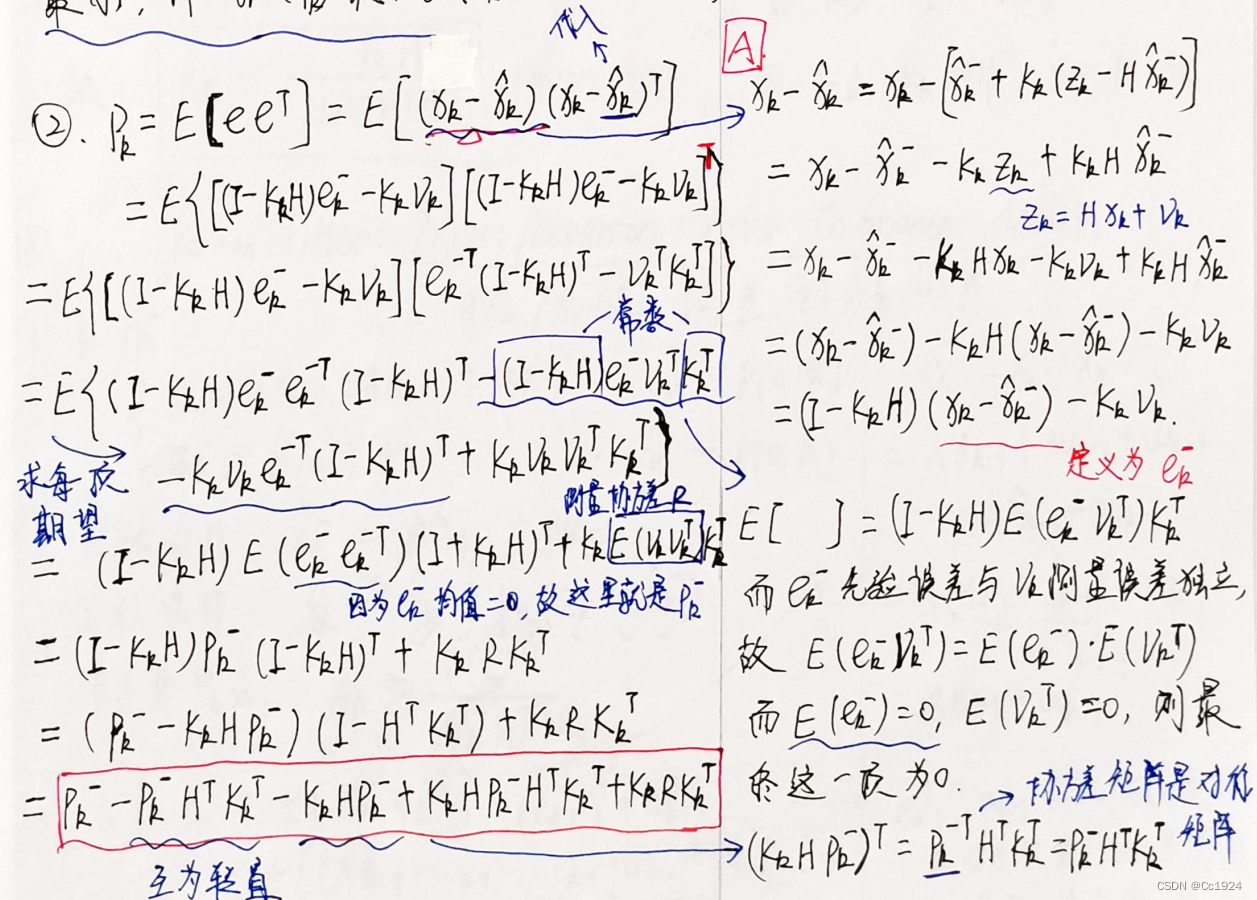 代入
②. P_k = E[e e^T] = E[(x_k - x̂_k)(x_k - x̂_k)^T]
= E{[(I-K_kH)e_k^- - K_kν_k][(I-K_kH)e_k^- - K_kν_k]^T}
= E{[(I-K_kH)e_k^- - K_kν_k][e_k^{-T}(I-K_kH)^T - ν_k^T K_k^T]}
常数
= E{(I-K_kH)e_k^- e_k^{-T}(I-K_kH)^T - (I-K_kH)e_k^- ν_k^T K_k^T
- K_kν_k e_k^{-T}(I-K_kH)^T + K_kν_kν_k^T K_k^T}
求每项
期望
测量协方差R
= (I-K_kH)E(e_k^- e_k^{-T})(I+K_kH)^T + K_k E(ν_kν_k^T) K_k^T
因为e_k^-均值=0,故这里就是P_k^-
= (I-K_kH)P_k^-(I-K_kH)^T + K_k R K_k^T
= (P_k^- - K_kHP_k^-)(I - H^T K_k^T) + K_k R K_k^T
= P_k^- - P_k^- H^T K_k^T - K_kHP_k^- + K_kHP_k^- H^T K_k^T + K_k R K_k^T
互为转置
A
x_k - x̂_k = x_k - [x̂_k^- + K_k(z_k - Hx̂_k^-)]
= x_k - x̂_k^- - K_k z_k + K_k H x̂_k^-
z_k = Hx_k + ν_k
= x_k - x̂_k^- - K_kHx_k - K_kν_k + K_kHx̂_k^-
= (x_k - x̂_k^-) - K_kH(x_k - x̂_k^-) - K_kν_k
= (I-K_kH)(x_k - x̂_k^-) - K_kν_k.
定义为e_k^-
E[ ] = (I-K_kH)E(e_k^- ν_k^T)K_k^T
而e_k^-先验误差与ν_k测量误差独立,
故 E(e_k^- ν_k^T) = E(e_k^-)·E(ν_k^T)
而E(e_k^-)=0, E(ν_k^T)=0, 则最
终这一项为0.
协方差矩阵是对称
矩阵
(K_kHP_k^-)^T = P_k^{-T}H^T K_k^T = P_k^- H^T K_k^T
CSDN @Cc1924